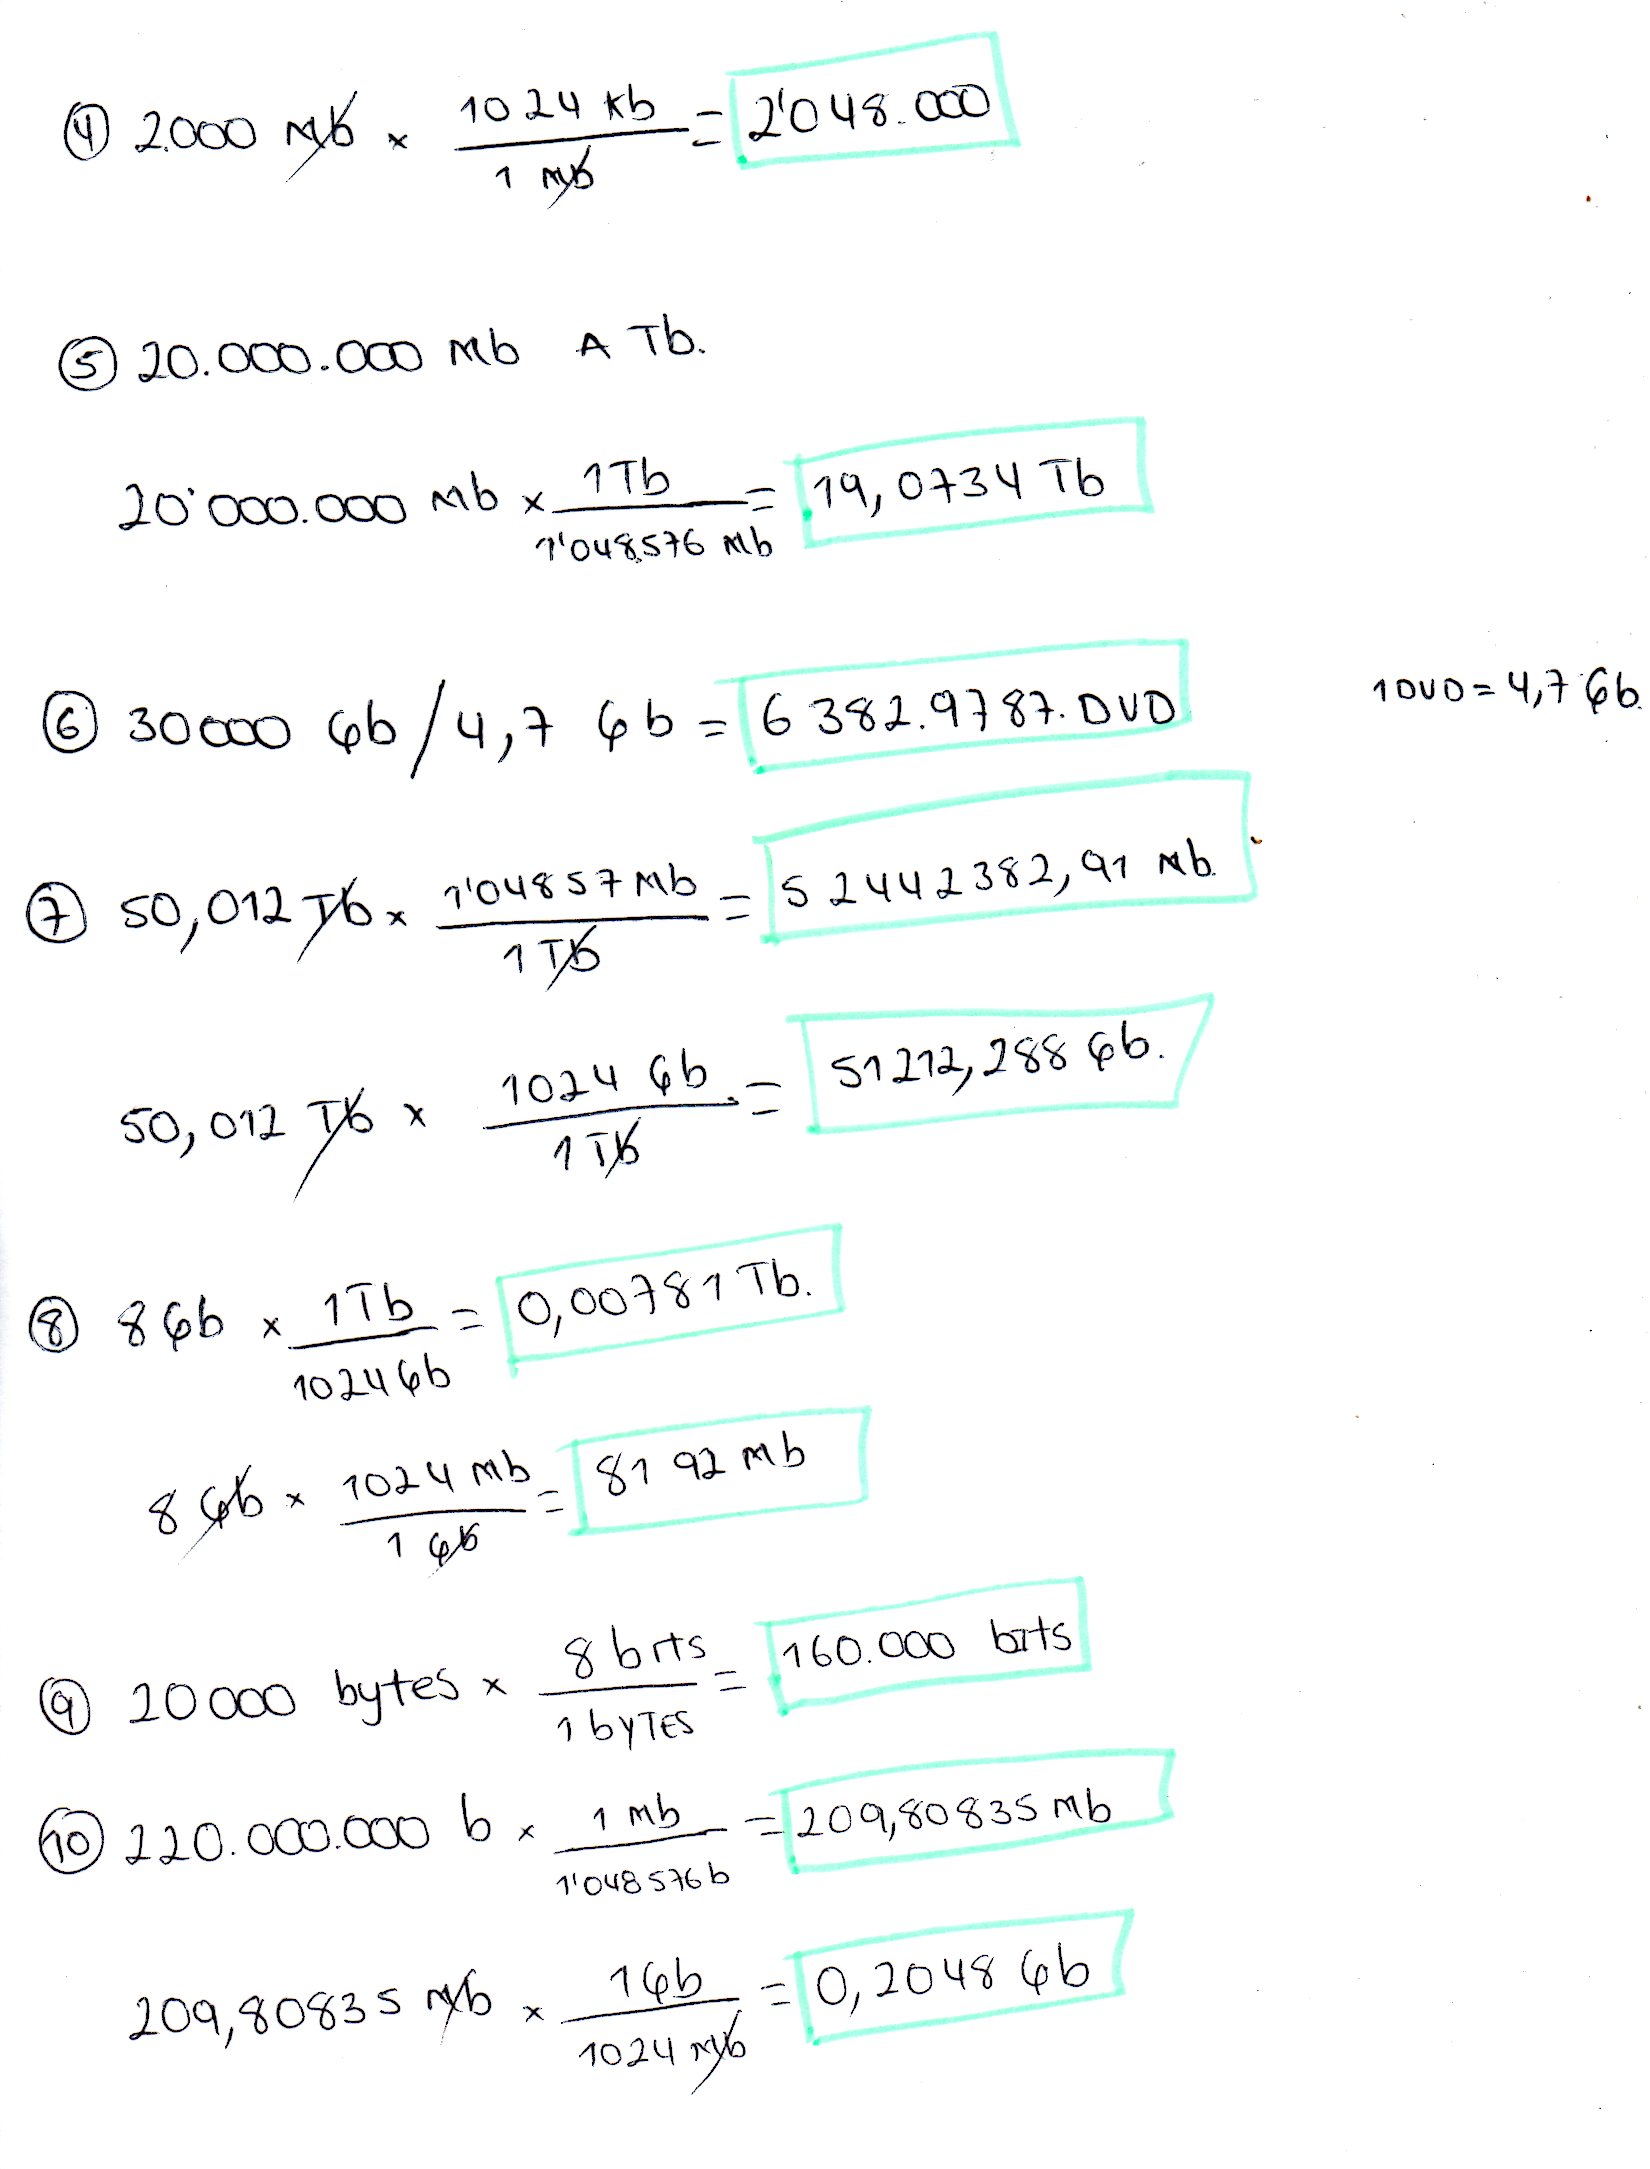 ④ 2.000 Mb × 1024 Kb / 1 Mb = 2'048.000
⑤ 20.000.000 Mb A Tb.
20'000.000 Mb × 1 Tb / 1'048.576 Mb = 19,0734 Tb
⑥ 30000 Gb / 4,7 Gb = 6382.9787. DVD
1 DVD = 4,7 Gb.
⑦ 50,012 Tb × 1'04857 Mb / 1 Tb = 52442382,91 Mb.
50,012 Tb × 1024 Gb / 1 Tb = 51212,288 Gb.
⑧ 8 Gb × 1 Tb / 1024 Gb = 0,00781 Tb.
8 Gb × 1024 Mb / 1 Gb = 8192 Mb
⑨ 20000 bytes × 8 bits / 1 bytes = 160.000 bits
⑩ 220.000.000 b × 1 Mb / 1'048576 b = 209,80835 Mb
209,80835 Mb × 1 Gb / 1024 Mb = 0,2048 Gb